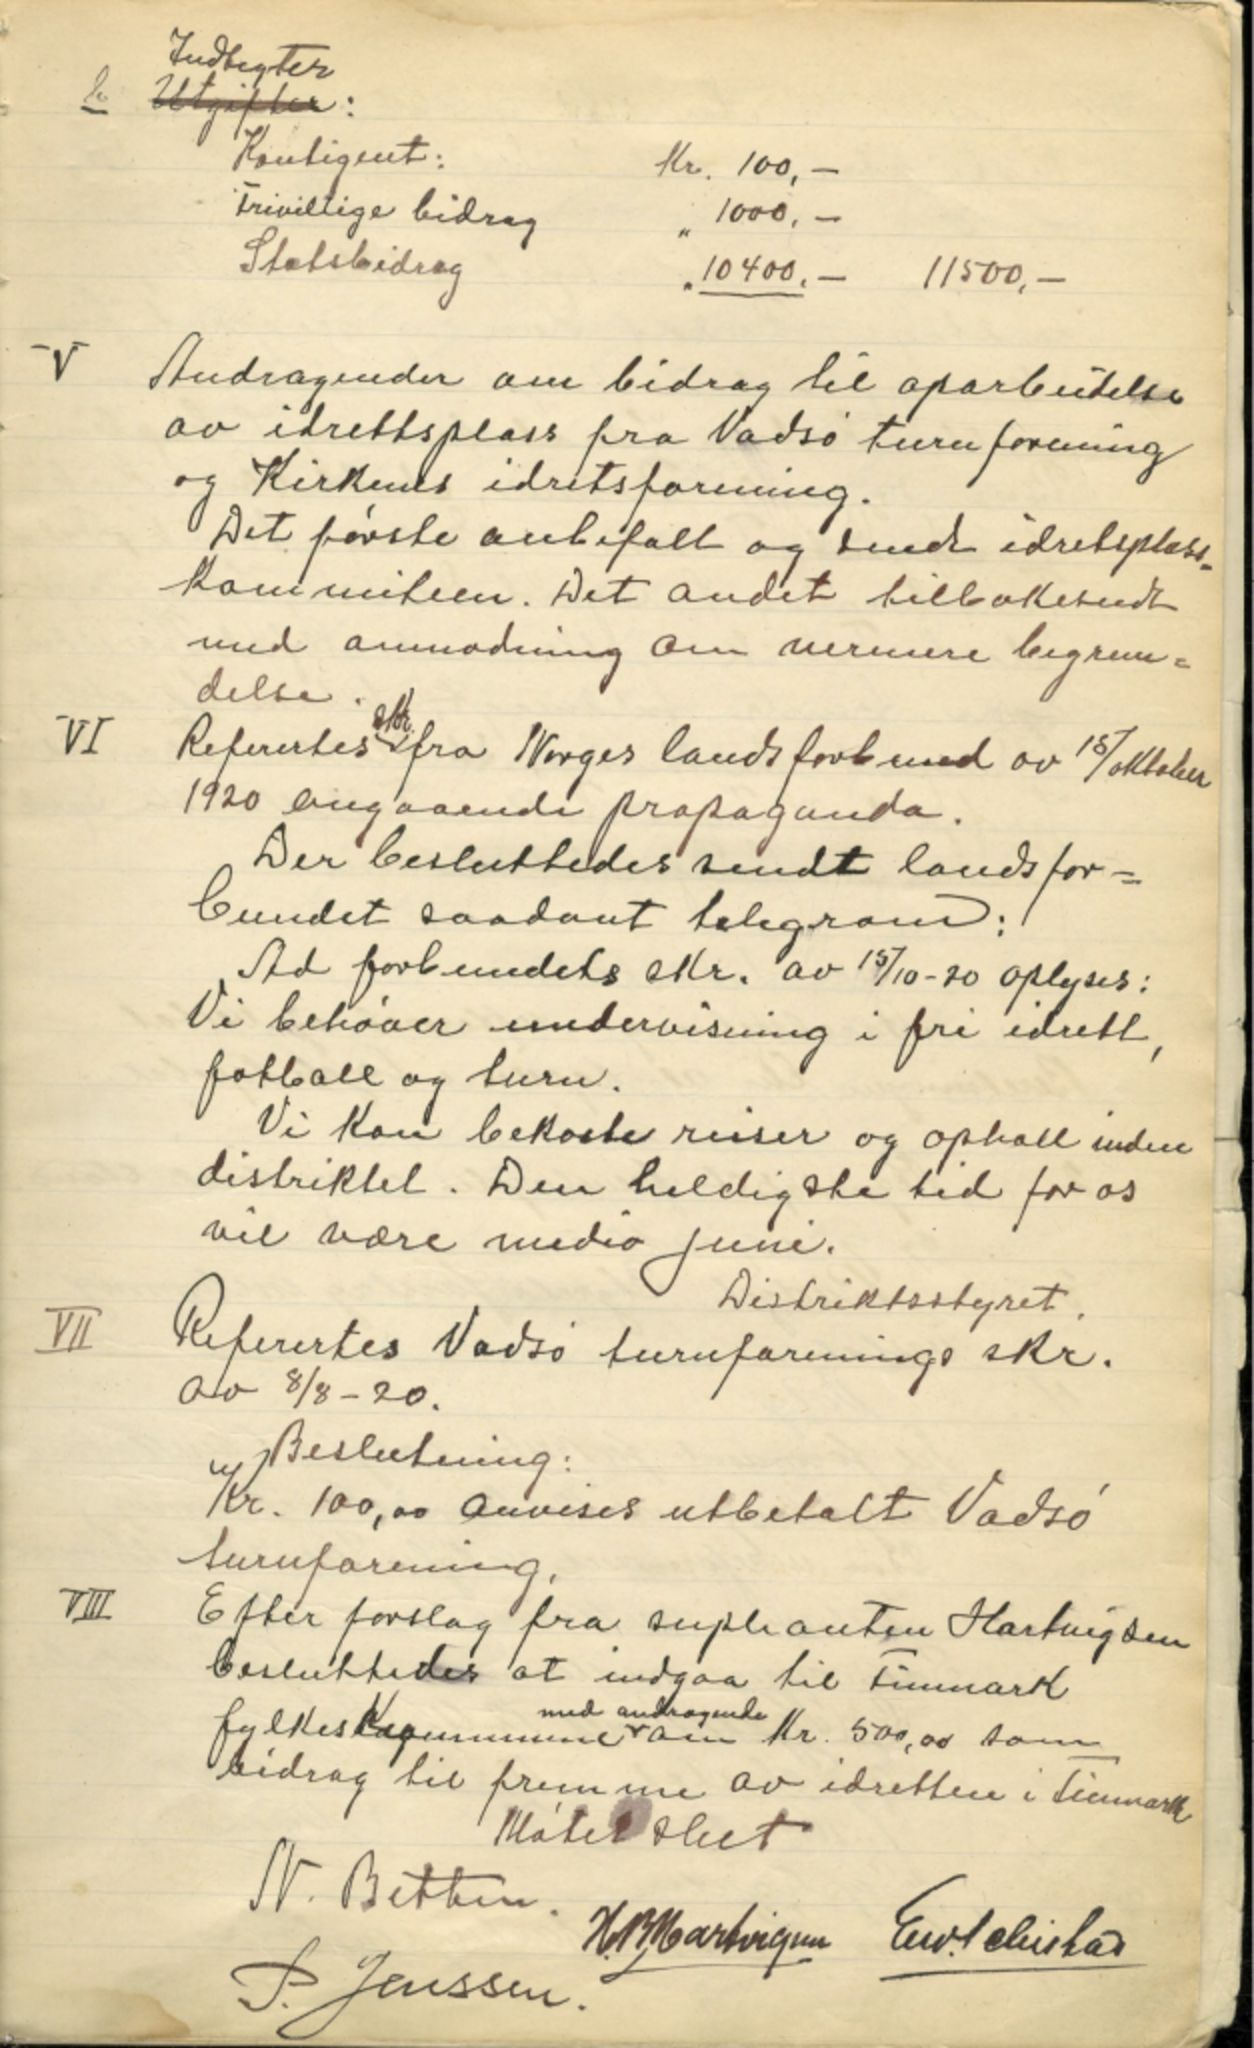 Indtegter
b. Utgifter:
Kontigent: Kr. 100,-
Frivillige bidrag " 1000,-
Statsbidrag " 10400,- 11500,-
V Andragender om bidrag til oparbeidelse
av idrettsplass fra Vadsö turnforening
og Kirkenes idretsforening.
Det förste anbefalt og sendt idretsplass-
kommiteen. Det andet tilbakesendt
med anmodning om nermere begrun=
delse.
VI Referertes skr. fra Norges landsforbund av 15/oktober
1920 angaaende propaganda.
Der besluttedes sendt landsfor=
bundet saadant telegram:
Ad forbundets skr. av 15/10-20 oplyses:
Vi behöver undervisning i fri idrett,
fotball og turn.
Vi kan bekoste reiser og ophall inden
distriktet. Den heldigste tid for os
vil være medio juni.
Distriktsstyret.
VII Referertes Vadsö turnforenings skr.
av 8/8-20.
Beslutning:
Kr. 100,00 anvises utbetalt Vadsö
turnforening.
VIII Efter forslag fra supleanten Hartvigsen
besluttedes at indgaa til Finmark
fylkeskommune med andragende om Kr. 500,00 som
bidrag til fremme av idretten i Finmark
Mötet slut
N. Betten.
H. Hartvigsen
P. Jenssen.